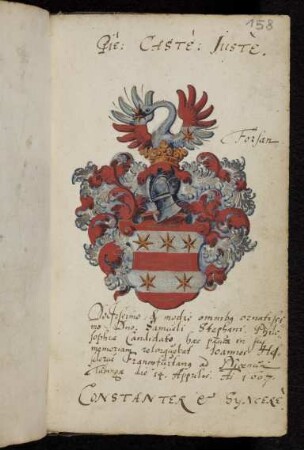 158
Piè: Castè: Iustè.
Forsan
Doctissimo & modis omnibus ornatissi-
mo Dno. Samueli Stephani Philo-
sophiæ Candidato hæc pauca in sui
memoriam relinquebat Ioannes
Francofurtanus ad
die 14. Aprilis. Ao 1607.
Constanter & Syncerè.